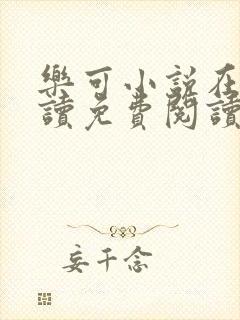 樂可小說在
讀免費閱讀
妄千念